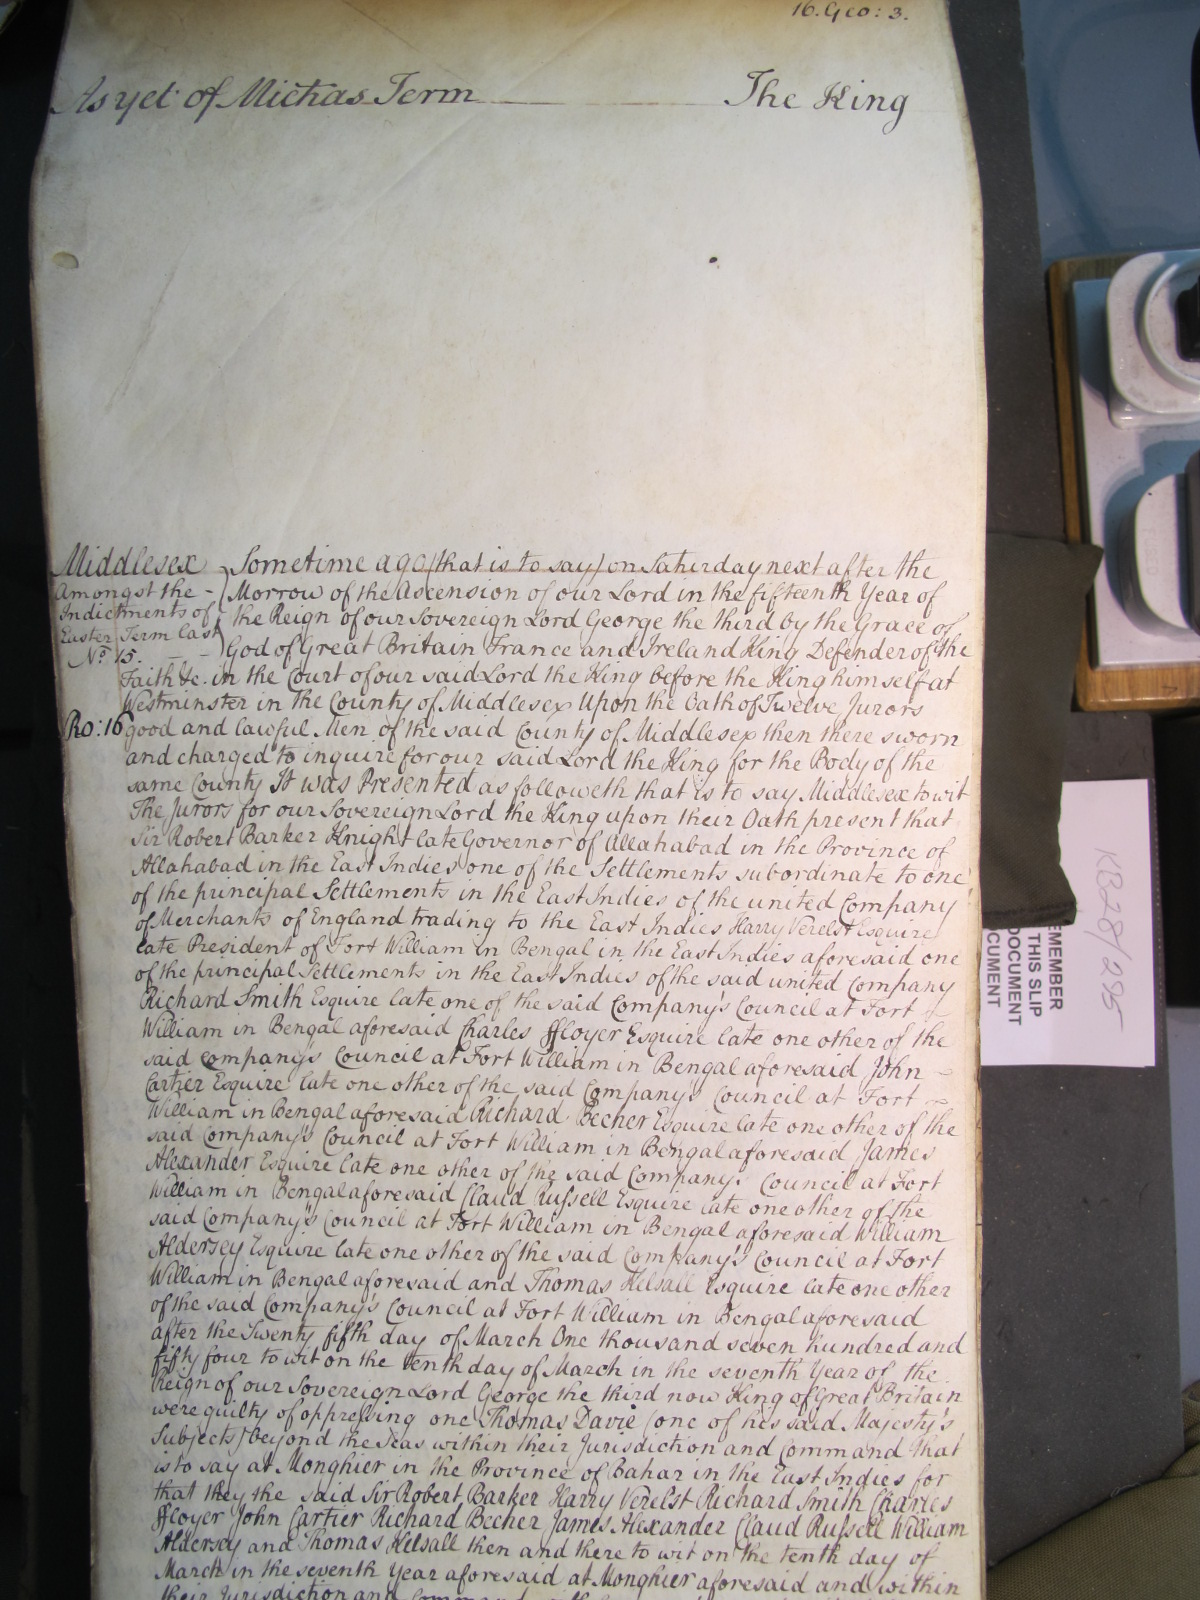 16. Geo: 3.
As yet of Michas Term The King
Middlesex Sometime ago (that is to say) on Saturday next after the
Amongst the - Morrow of the Ascension of our Lord in the fifteenth Year of
Indictments of the Reign of our Sovereign Lord George the third by the Grace of
Easter Term last God of Great Britain France and Ireland King Defender of the
No. 15. Faith &c. in the Court of our said Lord the King before the King himself at
Westminster in the County of Middlesex Upon the Oath of Twelve Jurors
Ro: 16 good and lawful Men of the said County of Middlesex then there sworn
and charged to inquire for our said Lord the King for the Body of the
same County It was Presented as followeth that is to say Middlesex to wit
The Jurors for our Sovereign Lord the King upon their Oath present that
Sir Robert Barker Knight late Governor of Allahabad in the Province of
Allahabad in the East Indies one of the Settlements subordinate to one
of the principal Settlements in the East Indies of the united Company
of Merchants of England trading to the East Indies Harry Verelst Esquire
late President of Fort William in Bengal in the East Indies aforesaid one
of the principal Settlements in the East Indies of the said united Company
Richard Smith Esquire late one of the said Company's Council at Fort
William in Bengal aforesaid Charles ffloyer Esquire late one other of the
said Company's Council at Fort William in Bengal aforesaid John
Cartier Esquire late one other of the said Company's Council at Fort
William in Bengal aforesaid Richard Becher Esquire late one other of the
said Company's Council at Fort William in Bengal aforesaid James
Alexander Esquire late one other of the said Company's Council at Fort
William in Bengal aforesaid Claud Russell Esquire late one other of the
said Company's Council at Fort William in Bengal aforesaid William
Aldersey Esquire late one other of the said Company's Council at Fort
William in Bengal aforesaid and Thomas Kelsall Esquire late one other
of the said Company's Council at Fort William in Bengal aforesaid
after the Twenty fifth day of March One thousand seven hundred and
fifty four to wit on the tenth day of March in the seventh Year of the
Reign of our Sovereign Lord George the third now King of Great Britain
were guilty of oppressing one Thomas Davie (one of his said Majesty's
Subjects) beyond the Seas within their Jurisdiction and Command that
is to say at Monghier in the Province of Bahar in the East Indies for
that they the said Sir Robert Barker Harry Verelst Richard Smith Charles
ffloyer John Cartier Richard Becher James Alexander Claud Russell William
Aldersey and Thomas Kelsall then and there to wit on the tenth day of
March in the seventh Year aforesaid at Monghier aforesaid and within
their Jurisdiction and
KB28/295
EMEMBER
THIS SLIP
DOCUMENT
CUMENT